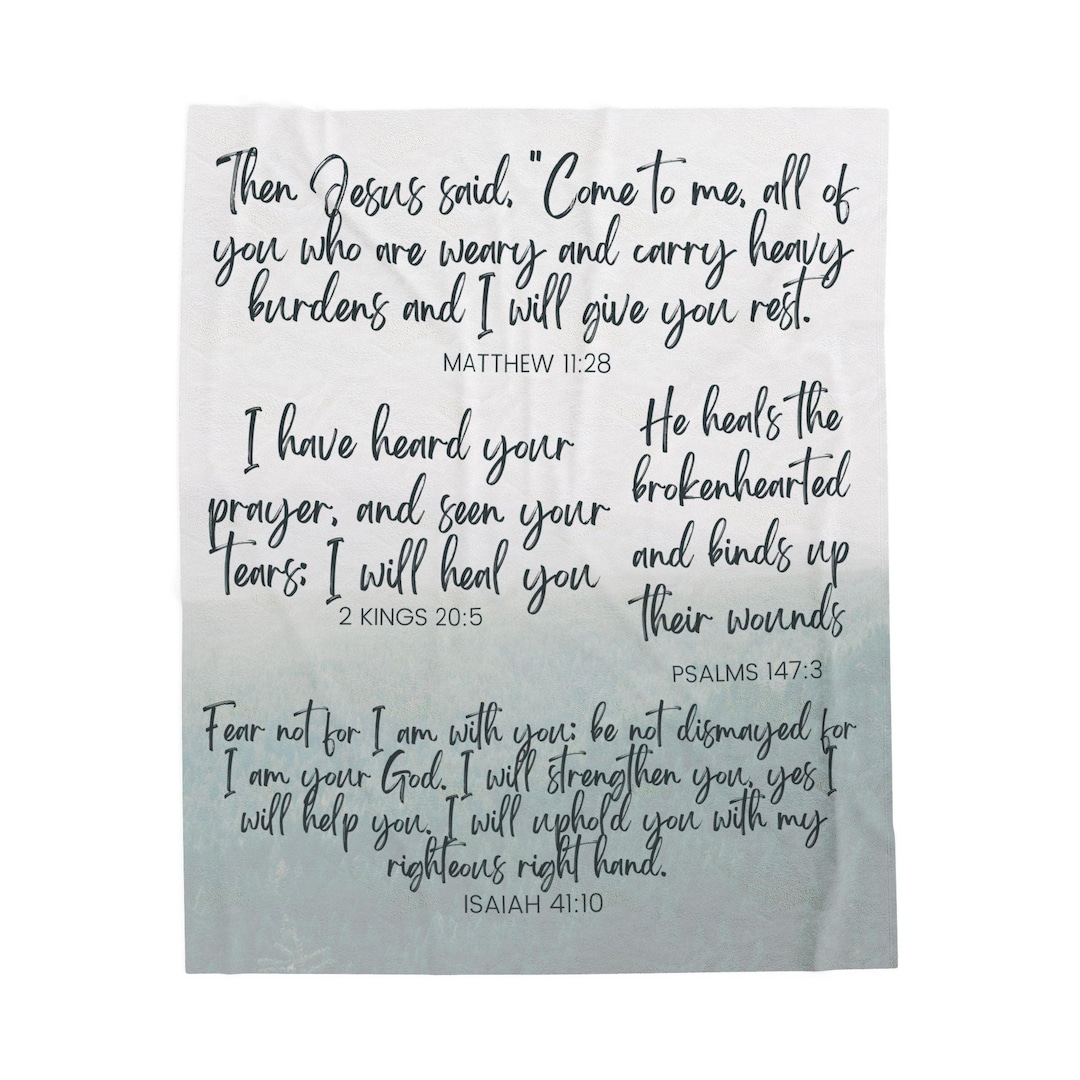 Then Jesus said, "Come to me, all of
you who are weary and carry heavy
burdens and I will give you rest.
MATTHEW 11:28
I have heard your
prayer, and seen your
tears: I will heal you
2 KINGS 20:5
He heals the
brokenhearted
and binds up
their wounds
PSALMS 147:3
Fear not for I am with you: be not dismayed for
I am your God. I will strengthen you, yes I
will help you. I will uphold you with my
righteous right hand.
ISAIAH 41:10